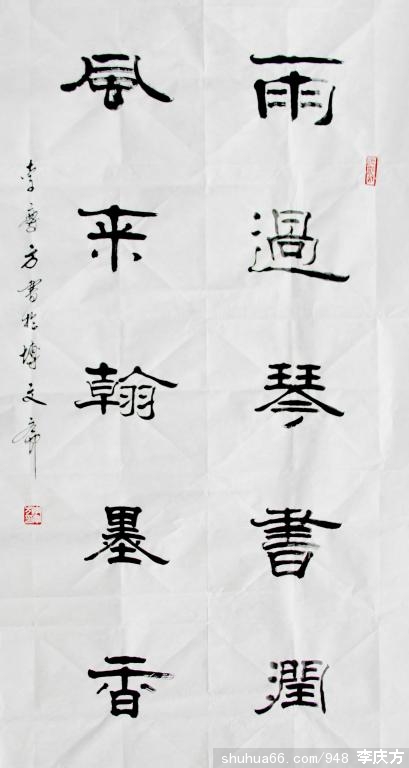 雨過琴書潤
風来翰墨香
李慶方書於博文齋
shuhua66.com/948 李庆方